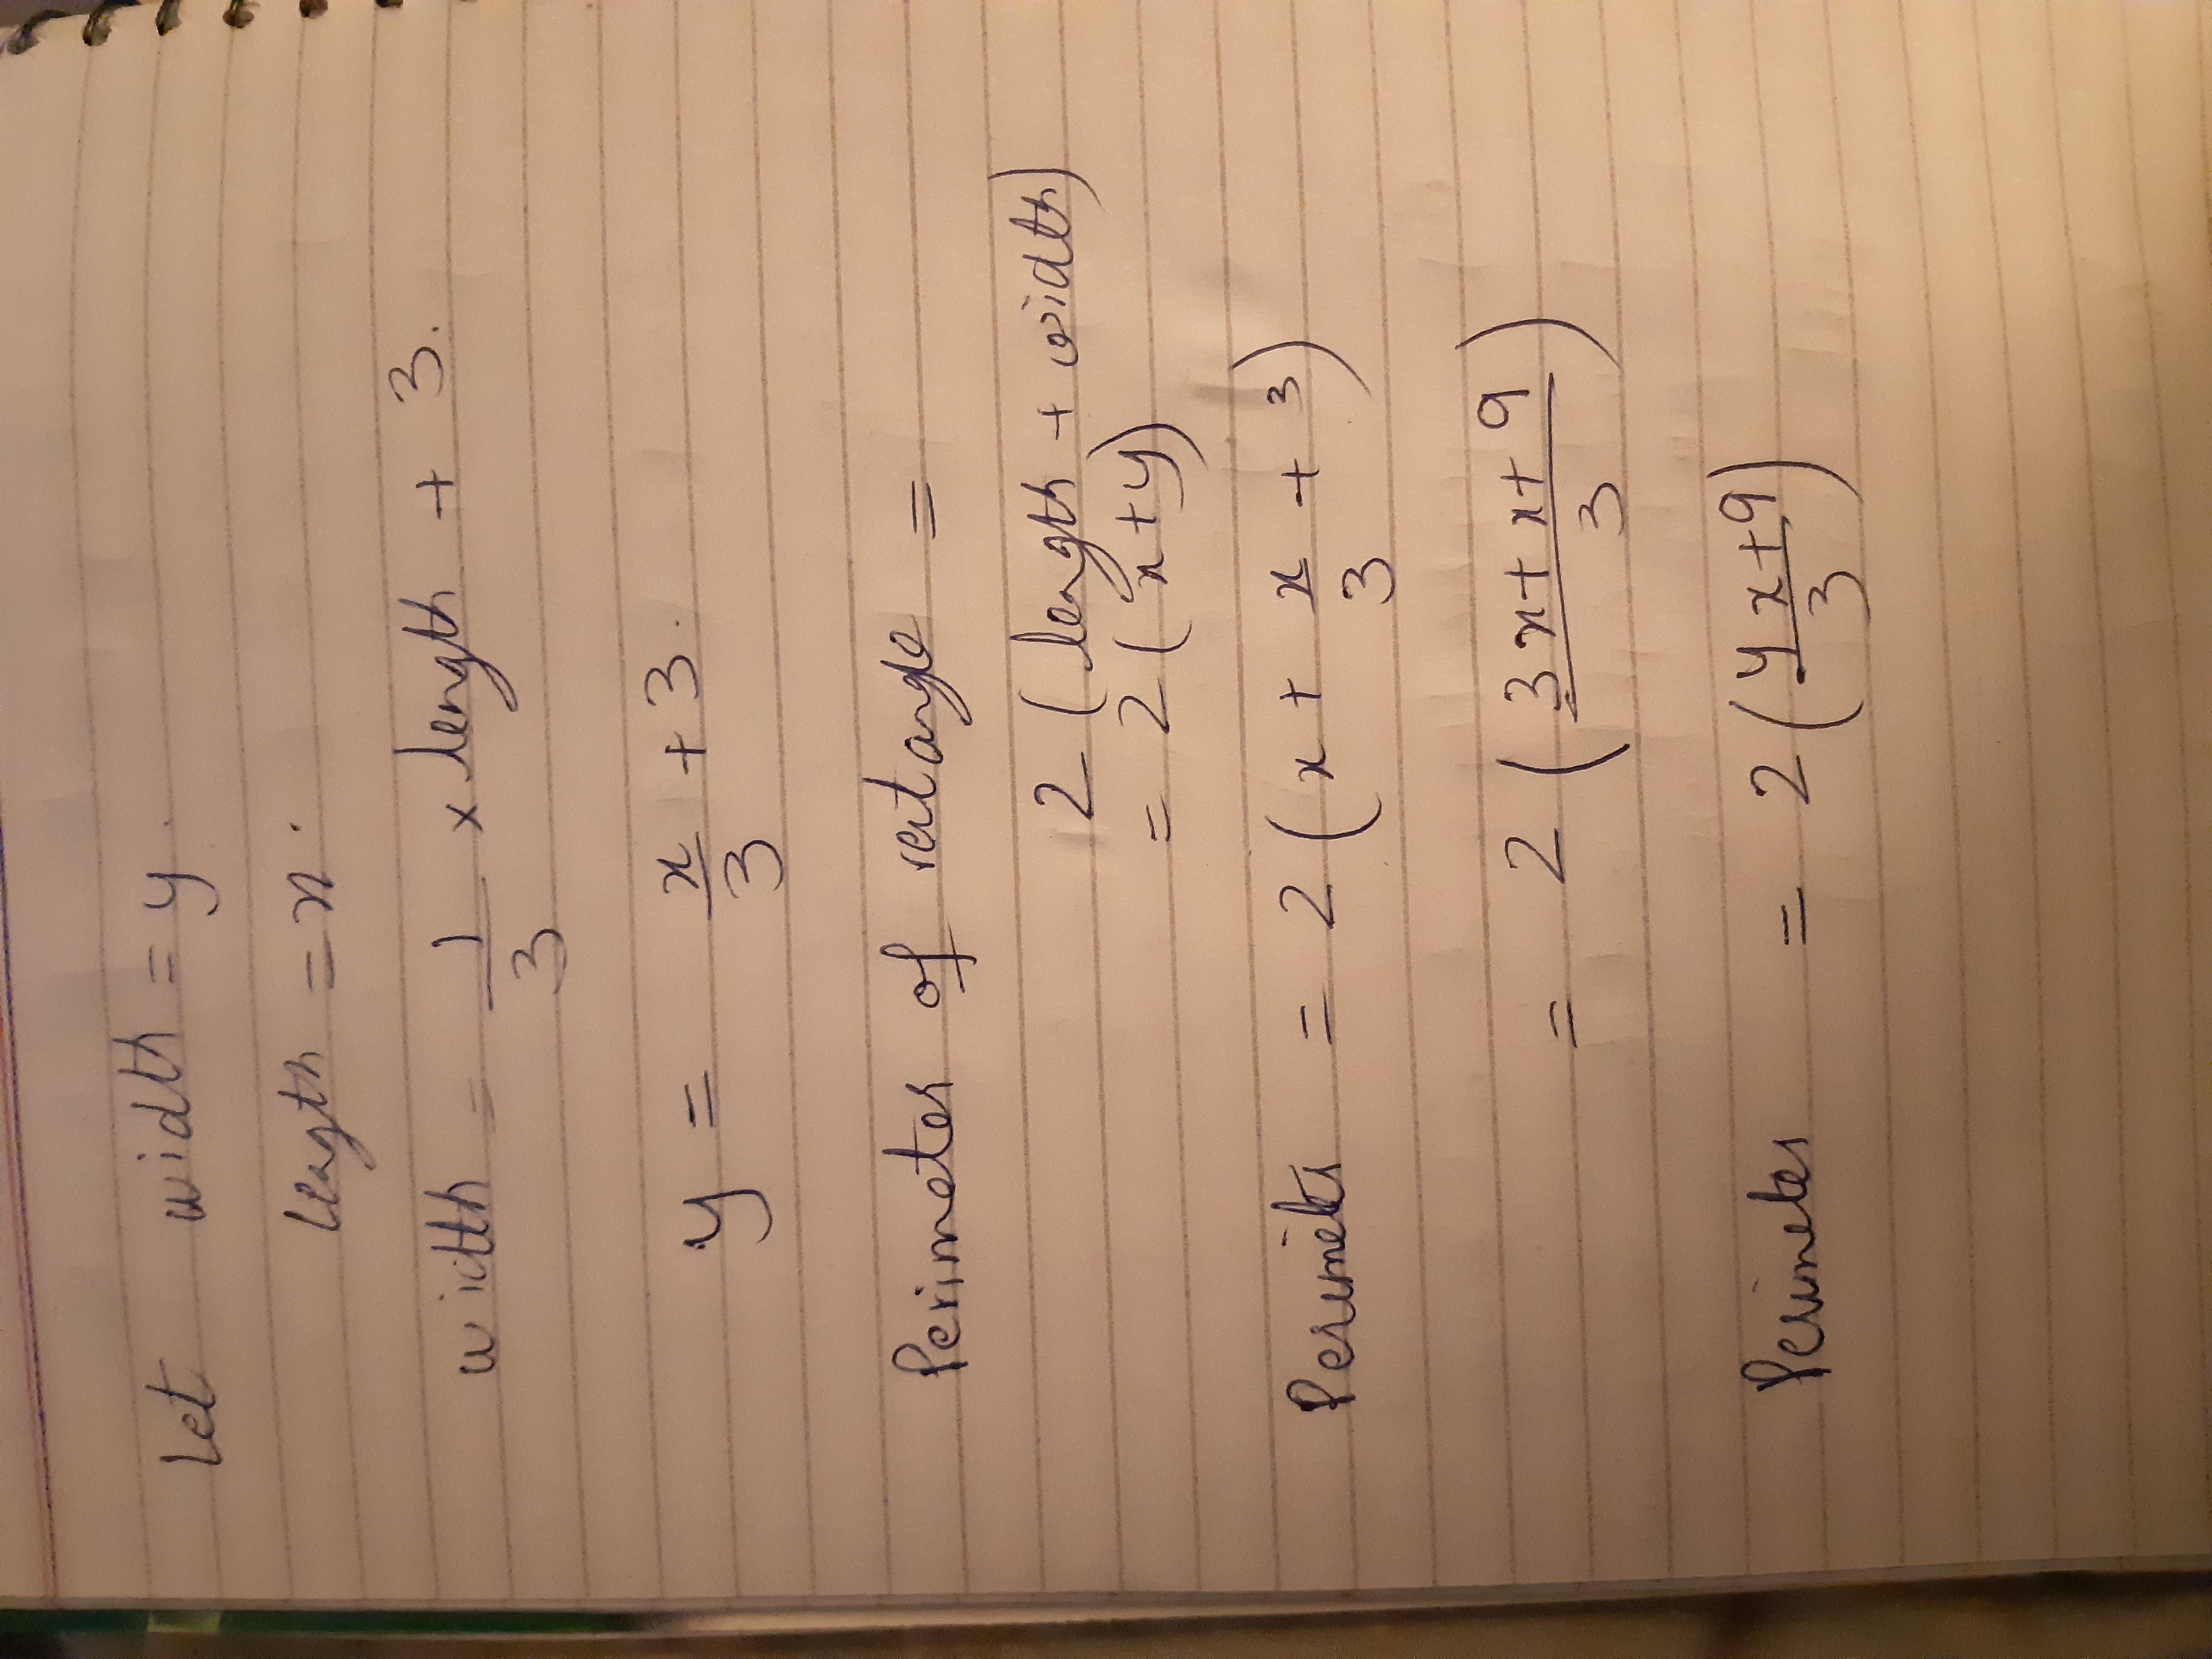 Let width = y.
length = x.
width = 1/3 × length + 3.
y = x/3 + 3.
Perimeter of rectangle =
2 (length + width)
= 2 (x+y)
Perimeter = 2 (x + x/3 + 3)
= 2 (3x+x+9/3)
Perimeter = 2 (4x+9/3)